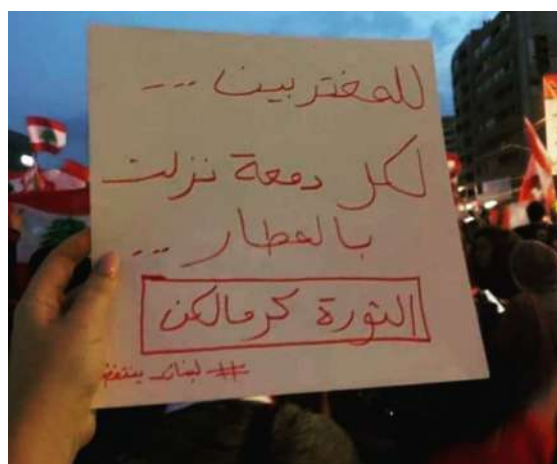 للمغتربين ...
لكل دمعة نزلت
بالمطار ...
الثورة كرمالكن
# لبنان ينتفض